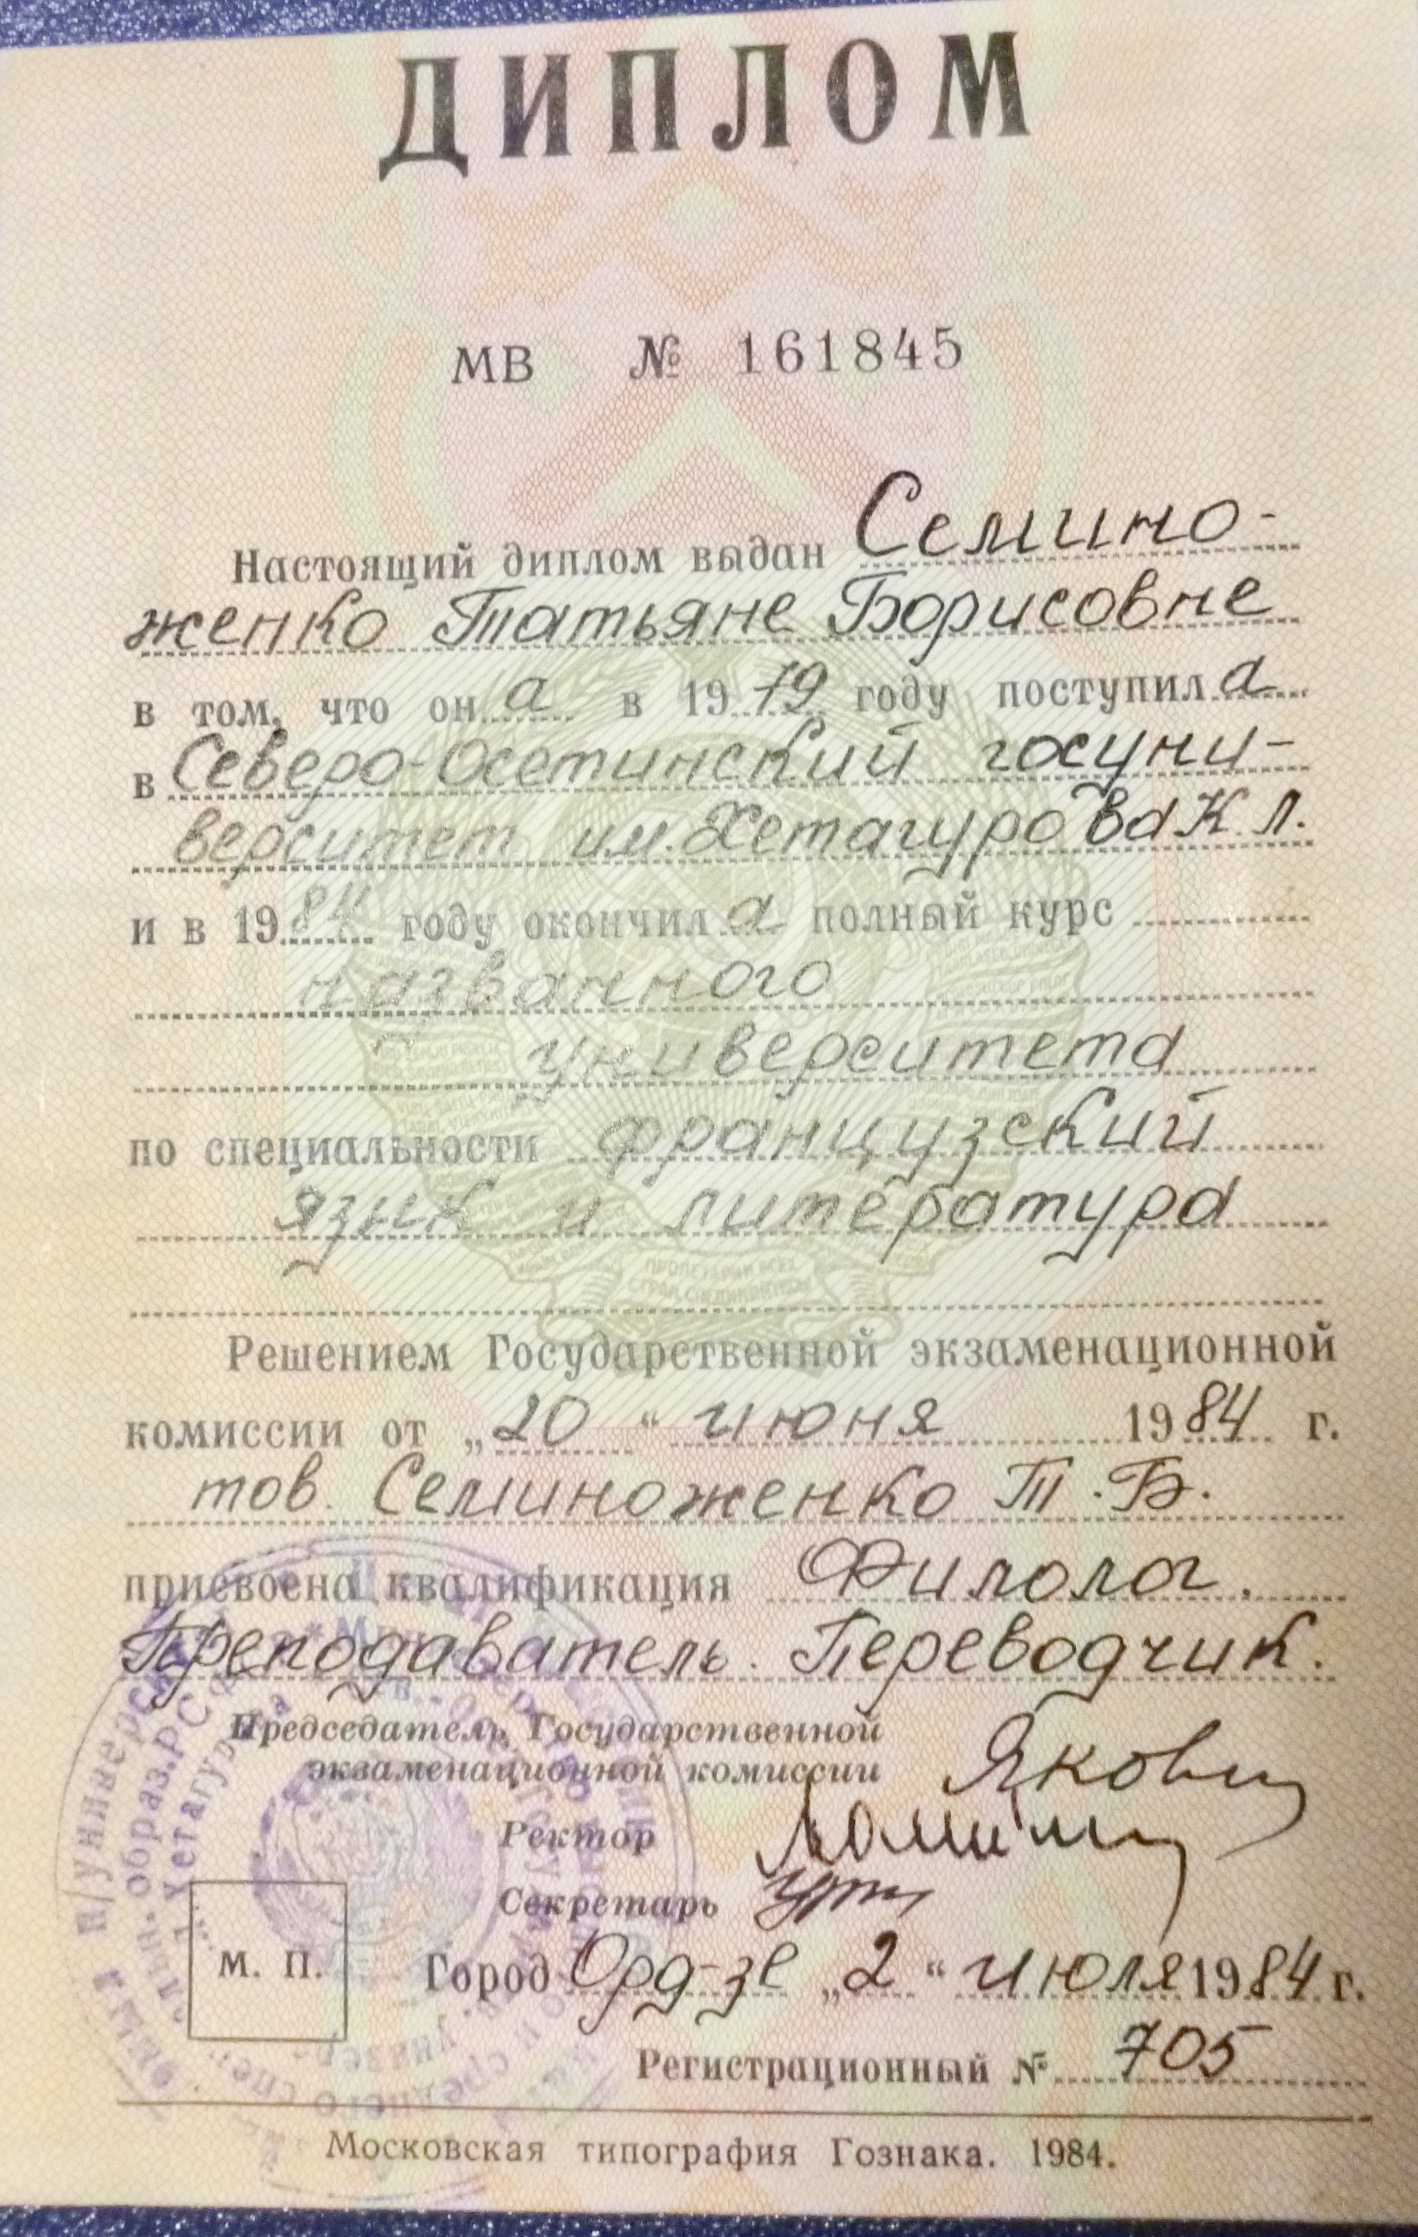 ДИПЛОМ
МВ № 161845
Настоящий диплом выдан Семино-
женко Татьяне Борисовне
в том, что он а в 1979 году поступил а
в Северо-Осетинский госуни-
верситет им. Хетагурова К. Л.
и в 1984 году окончил а полный курс
названного
университета
по специальности французский
язык и литература
Решением Государственной экзаменационной
комиссии от „20“ июня 1984 г.
тов. Семиноженко Т. Б.
присвоена квалификация Филолог.
Преподаватель. Переводчик.
Председатель Государственной
экзаменационной комиссии
Ректор
Секретарь
М. П.
Город Орд-зе „2“ июля 1984 г.
Регистрационный № 705
Московская типография Гознака. 1984.